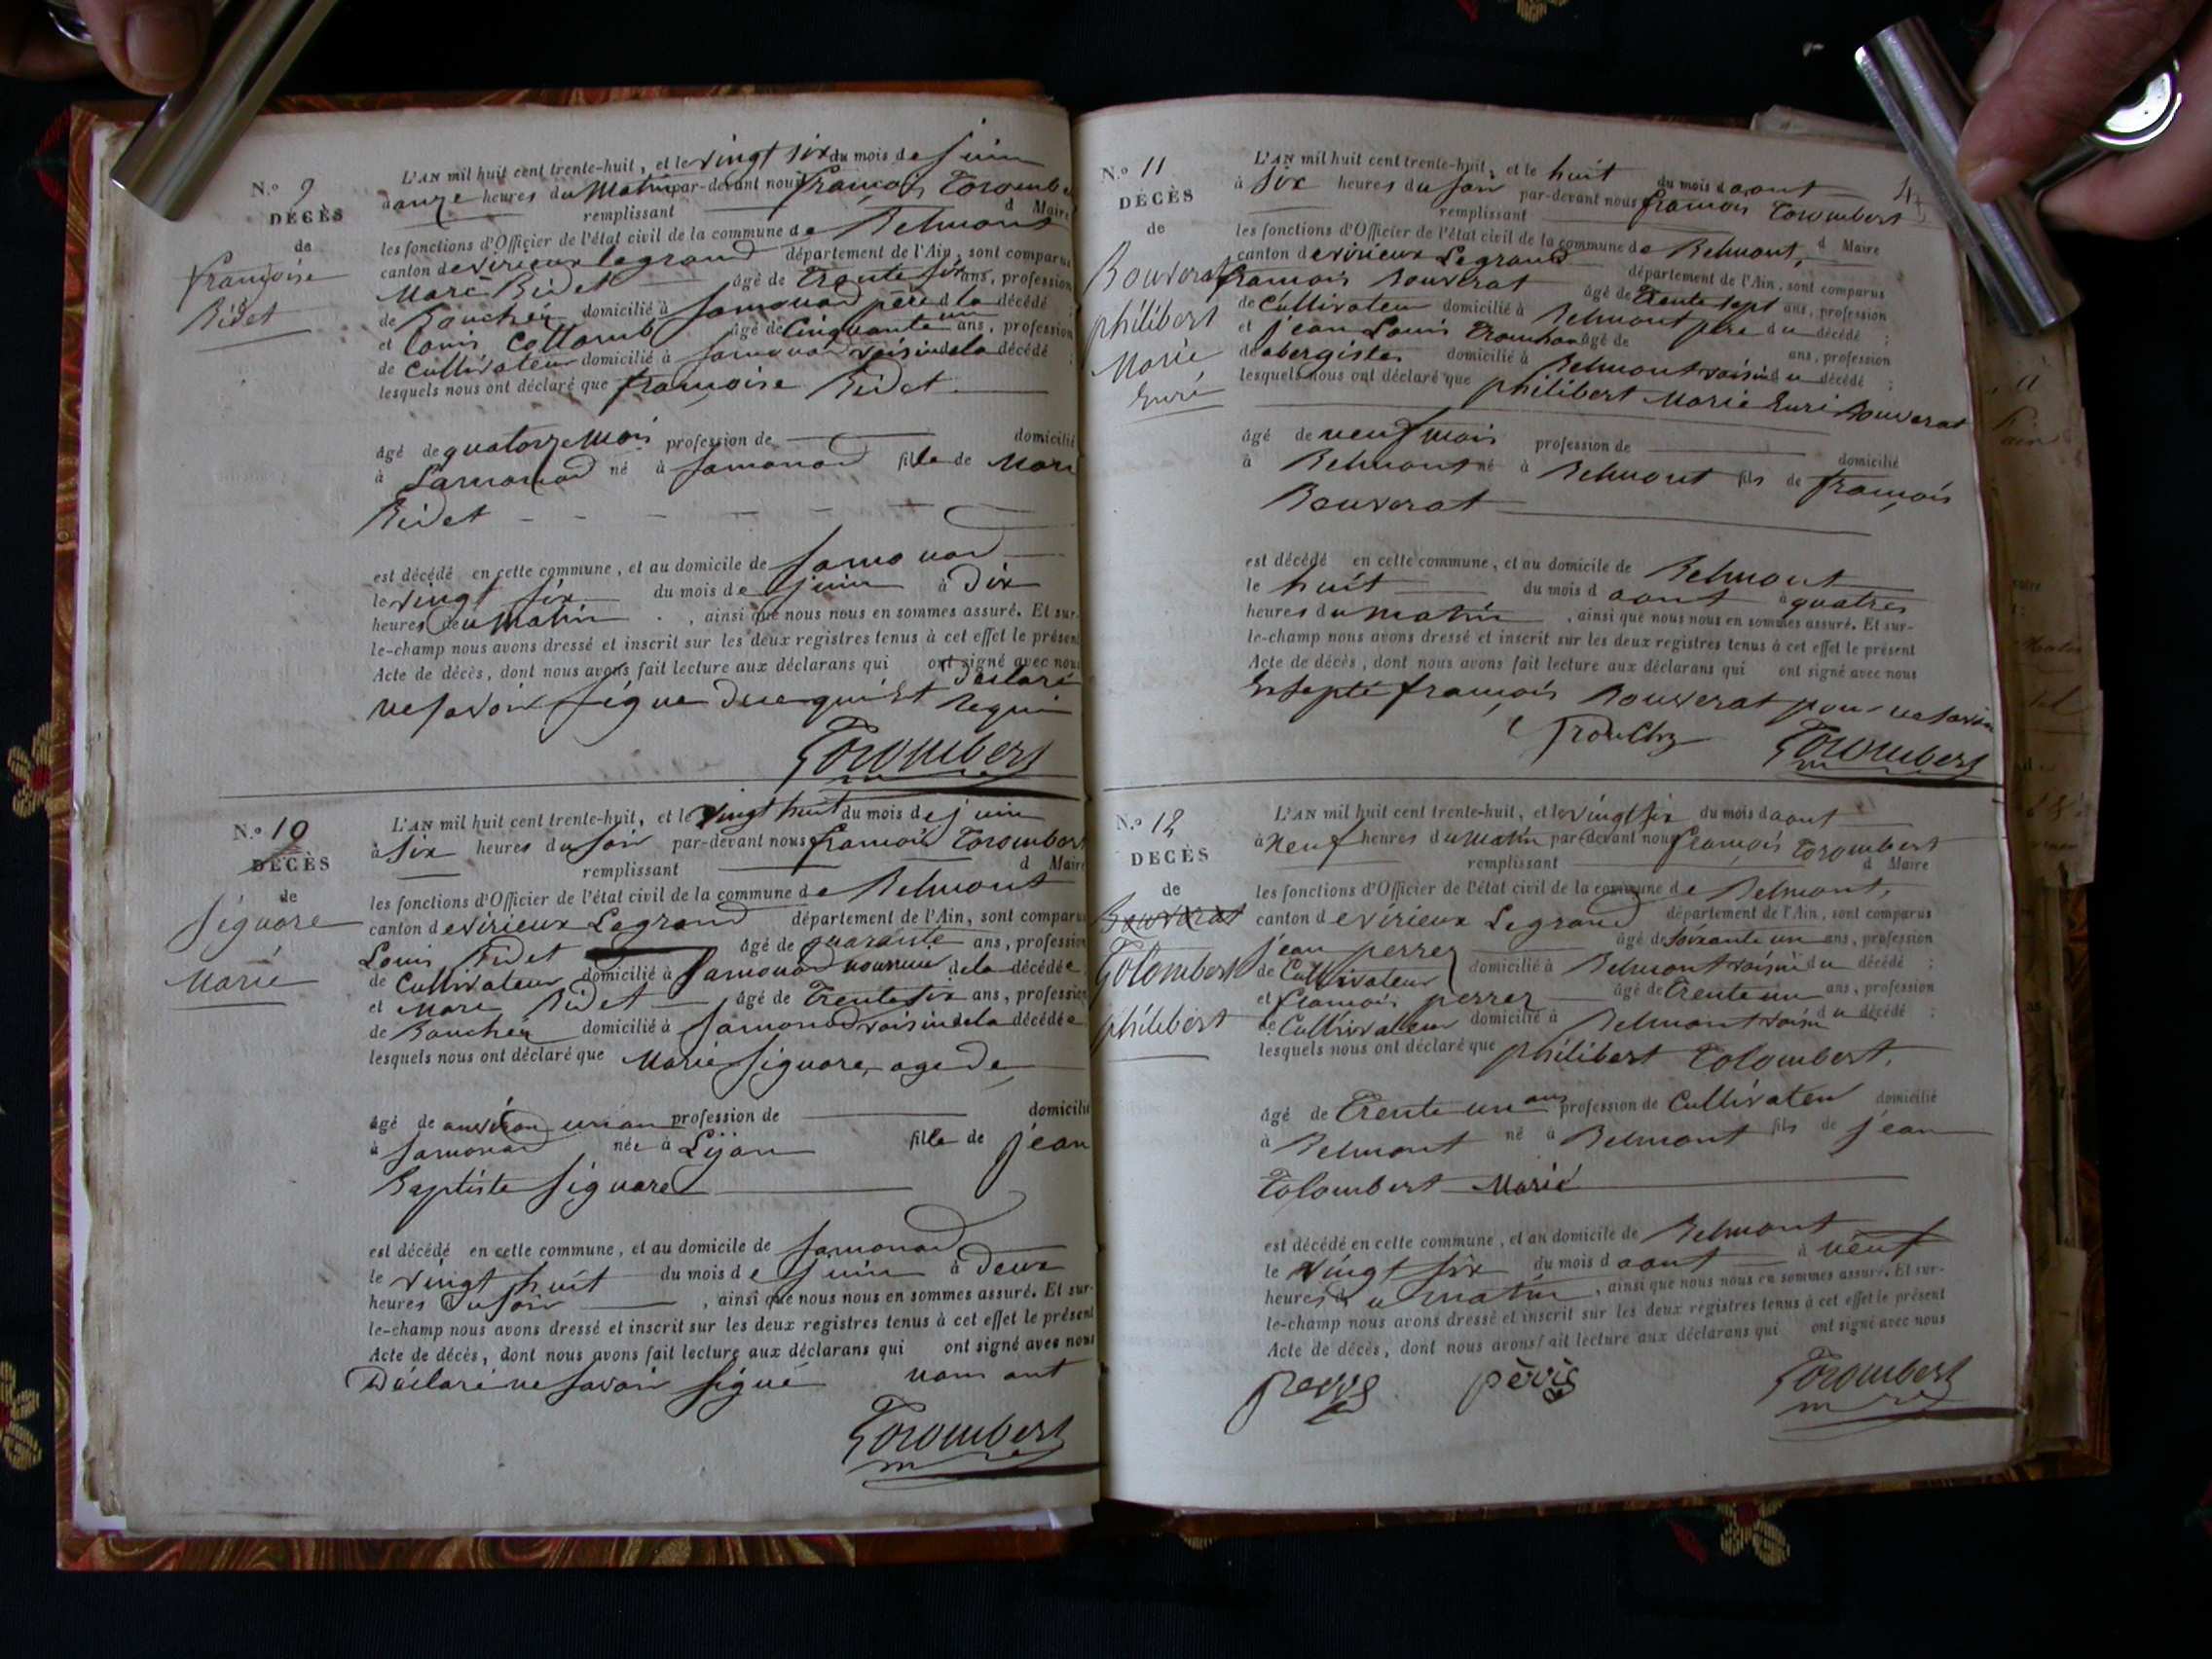 N.° 9
DÉCÈS
de
françoise
Bidet
L'AN mil huit cent trente-huit, et le vingt six du mois de juin
à onze heures du Matin par-devant nous françois Torombe
remplissant d Maire
les fonctions d'Officier de l'état civil de la commune de Belmont
canton de virieux legrand département de l'Ain, sont comparus
Marc Bidet âgé de Trente six ans, profession
de Boucher domicilié à Samonod père d la décédé ;
et Louis Collomb âgé de Cinquante un ans, profession
de Cultivateur domicilié à Samonod voisin dela décédé ;
lesquels nous ont déclaré que françoise Bidet
âgé de quatorze Mois profession de domicilié
à Samonod né à Samonod fille de Marc
Bidet
est décédé en cette commune, et au domicile de Samonod
le vingt six du mois de juin à Dix
heures du Matin, ainsi que nous nous en sommes assuré. Et sur-
le-champ nous avons dressé et inscrit sur les deux registres tenus à cet effet le présent
Acte de décès, dont nous avons fait lecture aux déclarans qui ont signé avec nous
Déclaré
ne savoir signe Requi
Torombert
N.° 10
DÉCÈS
de
Siguore
Marie
L'AN mil huit cent trente-huit, et le vingt huit du mois de juin
à Six heures du soir par-devant nous françois Torombert
remplissant d Maire
les fonctions d'Officier de l'état civil de la commune de Belmont
canton de virieux Legrand département de l'Ain, sont comparus
Louis Bidet âgé de quarante ans, profession
de Cultivateur domicilié à Samonod dela décédée ;
et Marc Bidet âgé de Trente six ans, profession
de Boucher domicilié à Samonod voisin dela décédée
lesquels nous ont déclaré que Marie Siguore, age de
âgé de anviron un an profession de domicilié
à Samonod née à Lijon fille de jean
Baptiste Siguore
est décédé en cette commune, et au domicile de Samonod
le vingt huit du mois de juin à Deux
heures du soir, ainsi que nous nous en sommes assuré. Et sur-
le-champ nous avons dressé et inscrit sur les deux registres tenus à cet effet le présent
Acte de décès, dont nous avons fait lecture aux déclarans qui ont signé avec nous
Déclaré ne savoir signé nom ont
Torombert
4
N.° 11
DÉCÈS
de
Bouverat
philibert
Marie
Enri
L'AN mil huit cent trente-huit, et le huit du mois d aout
à Six heures du soir par-devant nous françois Torombert
remplissant d Maire
les fonctions d'Officier de l'état civil de la commune de Belmont,
canton de virieux Legrand département de l'Ain, sont comparus
françois Bouverat âgé de Trente sept ans, profession
de Cultivateur domicilié à Belmont père du décédé ;
et jean Louis âgé de ans, profession
de abergiste domicilié à Belmont voisin du décédé ;
lesquels nous ont déclaré que philibert Marie Enri Bouverat
âgé de neuf mois profession de domicilié
à Belmont né à Belmont fils de françois
Bouverat
est décédé en cette commune, et au domicile de Belmont
le huit du mois d aout à quatres
heures du matin, ainsi que nous nous en sommes assuré. Et sur-
le-champ nous avons dressé et inscrit sur les deux registres tenus à cet effet le présent
Acte de décès, dont nous avons fait lecture aux déclarans qui ont signé avec nous
Exsepté françois Bouverat pour ne savoir
Torombert
N.° 12
DÉCÈS
de
Bouverat
Tolombert
philibert
L'AN mil huit cent trente-huit, et le vingt six du mois d aout
à Neuf heures du Matin par-devant nous françois Torombert
remplissant d Maire
les fonctions d'Officier de l'état civil de la commune de Belmont,
canton de virieux Legrand département de l'Ain, sont comparus
jean perrez âgé de soixante un ans, profession
de Cultivateur domicilié à Belmont voisin du décédé ;
et françois perrez âgé de Trente un ans, profession
de Cultivateur domicilié à Belmont voisin du décédé ;
lesquels nous ont déclaré que philibert Tolombert,
âgé de Trente un ans profession de Cultivateu domicilié
à Belmont né à Belmont fils de jean
Tolombert Marié
est décédé en cette commune, et au domicile de Belmont
le vingt six du mois d aout à neuf
heures du matin, ainsi que nous nous en sommes assuré. Et sur-
le-champ nous avons dressé et inscrit sur les deux registres tenus à cet effet le présent
Acte de décès, dont nous avons fait lecture aux déclarans qui ont signé avec nous
Torombert